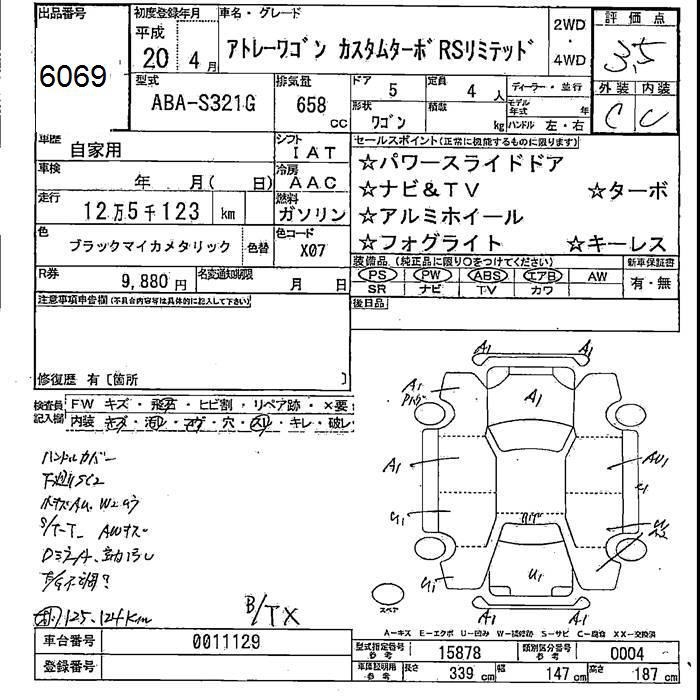 出品番号 初度登録年月 車名・グレード 2WD・4WD 評価点
6069 平成 20年 4月 アトレーワゴン カスタムターボRSリミテッド 3.5
型式 排気量 ドア 5 定員 4人 ディーラー・並行 外装 内装
ABA-S321G 658 CC 形状 ワゴン 積載 kg モデル年式 年 ハンドル 左・右 C C
車歴 自家用 シフト IAT セールスポイント(正常に機能するものに限ります)
車検 年 月( 日) 冷房 AAC ☆パワースライドドア
走行 12万5千123 km 燃料 ガソリン ☆ナビ&TV ☆ターボ
☆アルミホイール
色 ブラックマイカメタリック 色替 色コード X07 ☆フォグライト ☆キーレス
装備品(純正品に限り○をつけてください) 新車保証書
R券 9,880円 名変通知期限 月 日 PS PW ABS エアB AW 有・無
SR ナビ TV カワ
注意事項申告欄(不具合内容等は具体的に記入して下さい) 後日品
修復歴 有〔箇所 〕
検査員記入欄 FW キズ・飛石・ヒビ割・リペア跡・×要
内装 キズ・汚レ・コゲ・穴・スレ・キレ・破レ
A1 A1
A1 A1
A1 AU1
U1
U1 U1
A1 A1
ハンドルカバー
下廻りSC2
D ミラーA
125,124km
B/TX
スペア
A-キズ E-エクボ U-凹み W-補修跡 S-サビ C-腐食 XX-交換済
車台番号 0011129 型式指定番号 参考 15878 類別区分番号 参考 0004
登録番号 車庫証明用 参考 長さ 339cm 幅 147cm 高さ 187cm